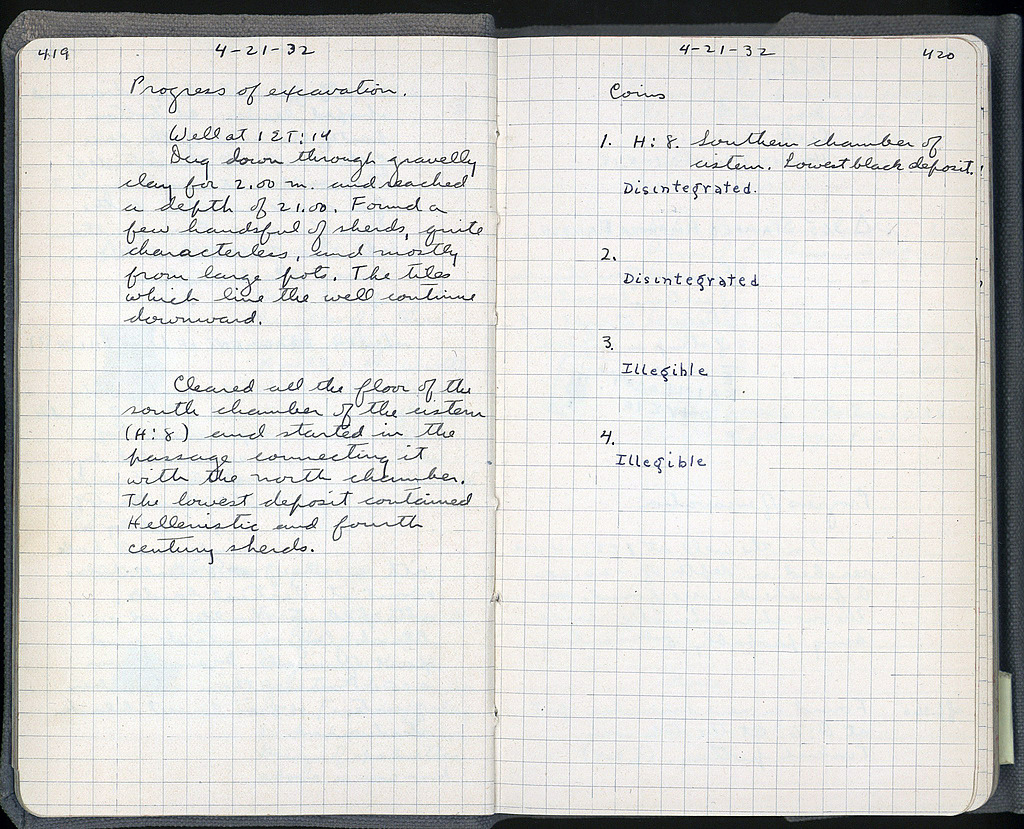 419
4-21-32
Progress of excavation.
Well at 12T:14
Dug down through gravelly
clay for 2.00 m. and reached
a depth of 21.00. Found a
few handsful of sherds, quite
characterless, and mostly
from large pots. The tiles
which line the well continue
downward.
Cleared all the floor of the
south chamber of the cistern
(H:8) and started in the
passage connecting it
with the north chamber.
The lowest deposit contained
Hellenistic and fourth
century sherds.
4-21-32
420
Coins
1. H:8. Southern chamber of
cistern. Lowest black deposit.
Disintegrated.
2.
Disintegrated
3.
Illegible
4.
Illegible